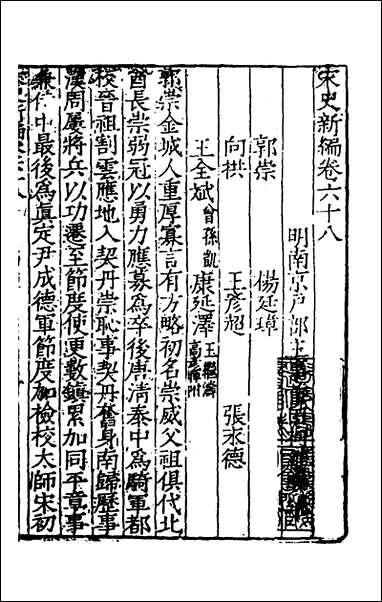 宋史新編卷六十八
明南京户部主
郭崇 楊廷璋
向拱 王彥超 張永德
王全斌曾孫凱 康延澤王繼濤高彥暉附
郭崇金城人重厚寡言有方略初名崇威父祖俱代北
酋長崇弱冠以勇力應募為卒後唐清泰中為騎軍都
校晉祖割雲應地入契丹崇恥事契丹奮身南歸歷事
漢周屢將兵以功遷至節度使更數鎮累加同平章事
兼侍中最後為真定尹成德軍節度加檢校太師宋初